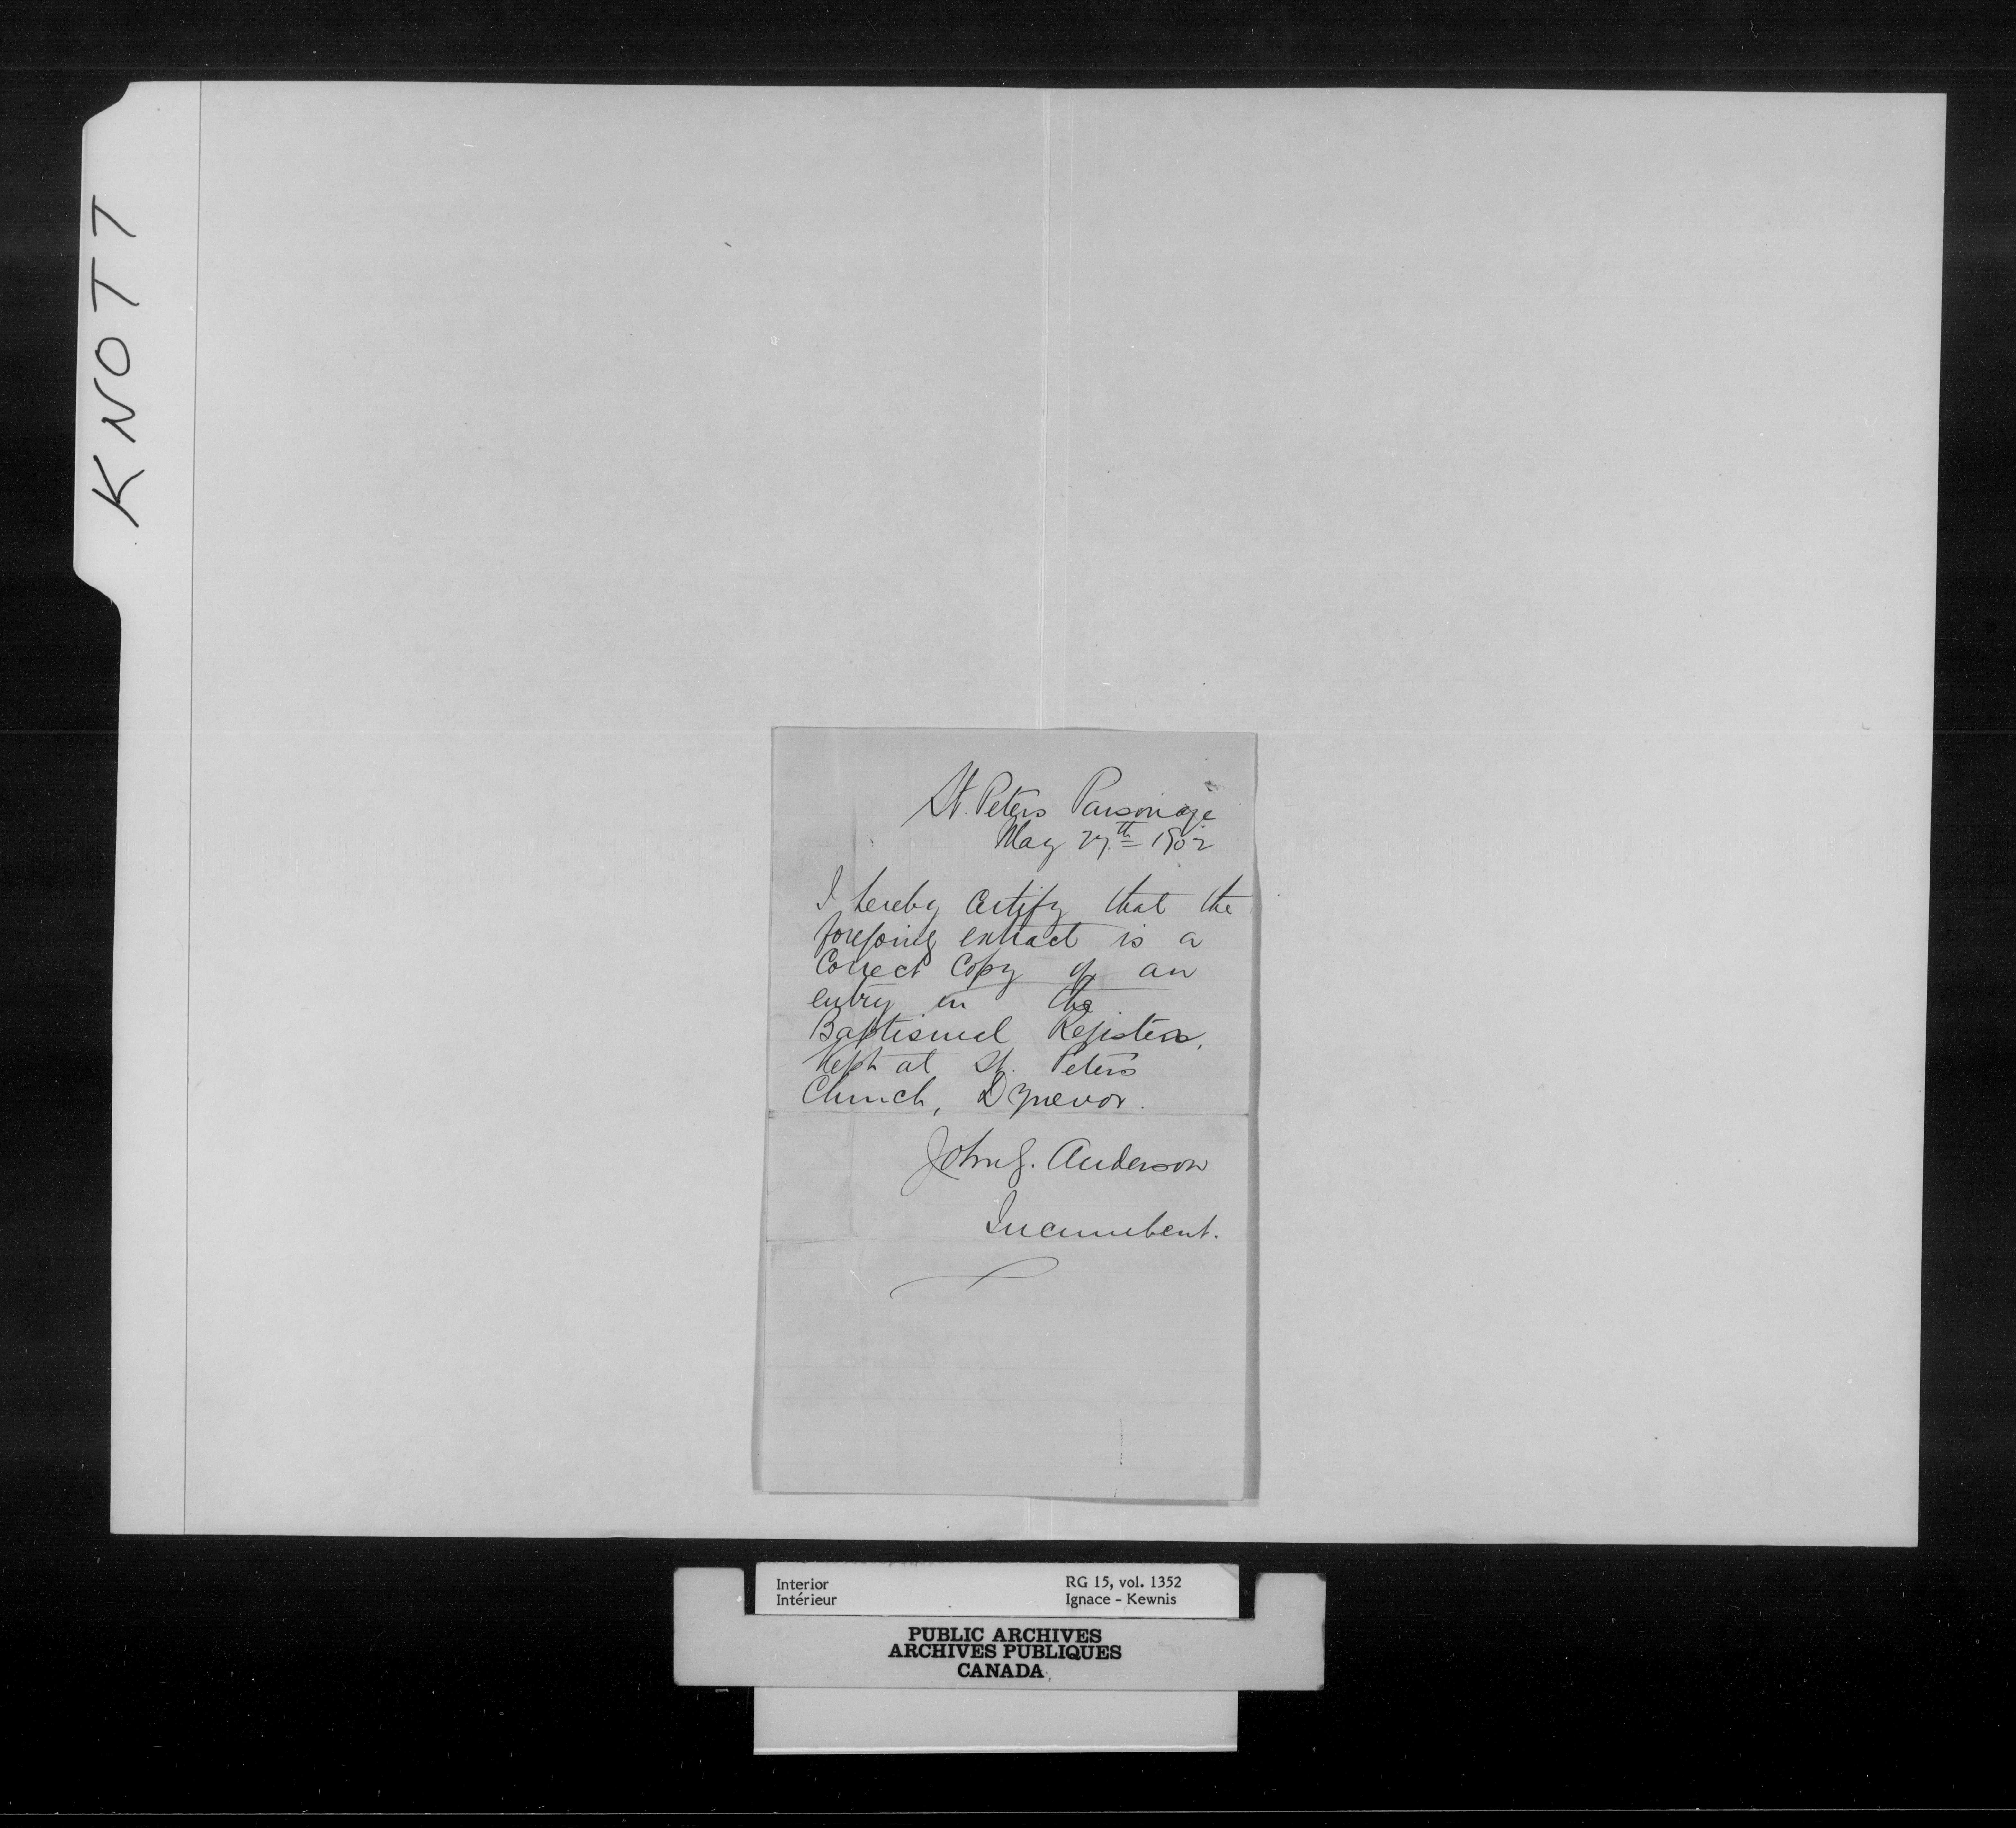 KNOTT
St. Peters Parsonage
May 27th 1902
I hereby Certify that the
foregoing extract is a
Correct Copy of an
entry in the
Baptismal Registers,
Kept at St. Peters
Church, Dynevor.
John G. Anderson
Incumbent.
Interior
Intérieur
RG 15, vol. 1352
Ignace - Kewnis
PUBLIC ARCHIVES
ARCHIVES PUBLIQUES
CANADA